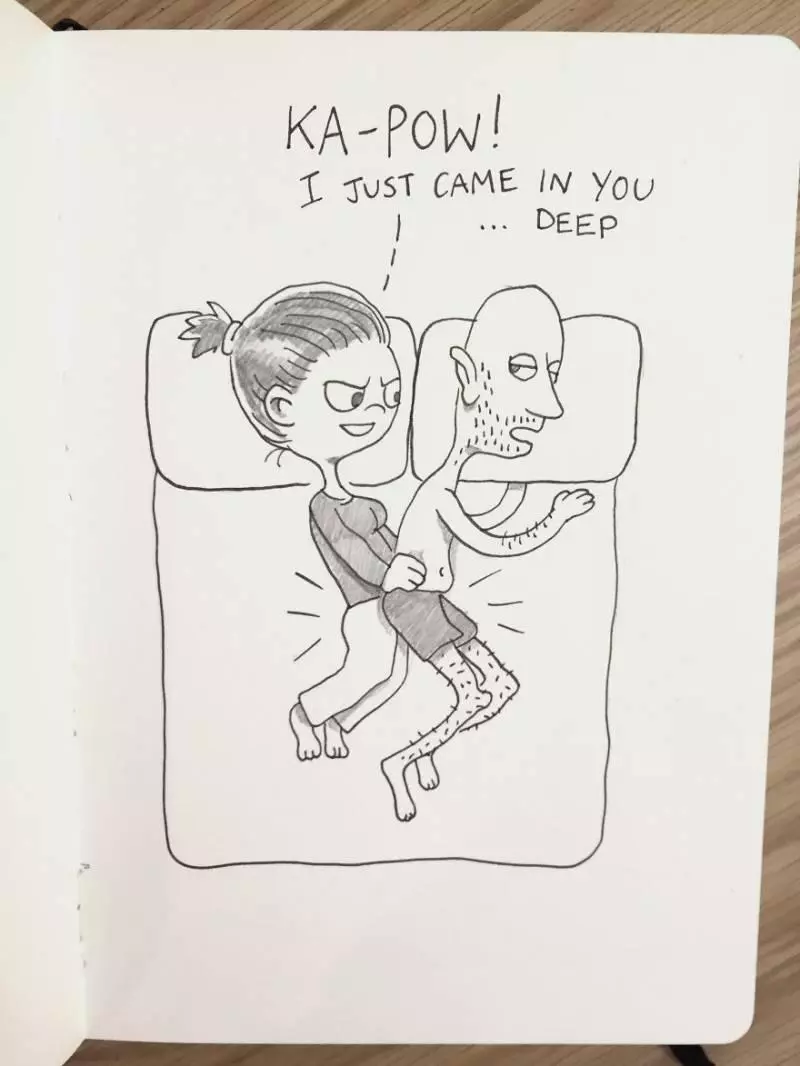 KA-POW!
I JUST CAME IN YOU
... DEEP